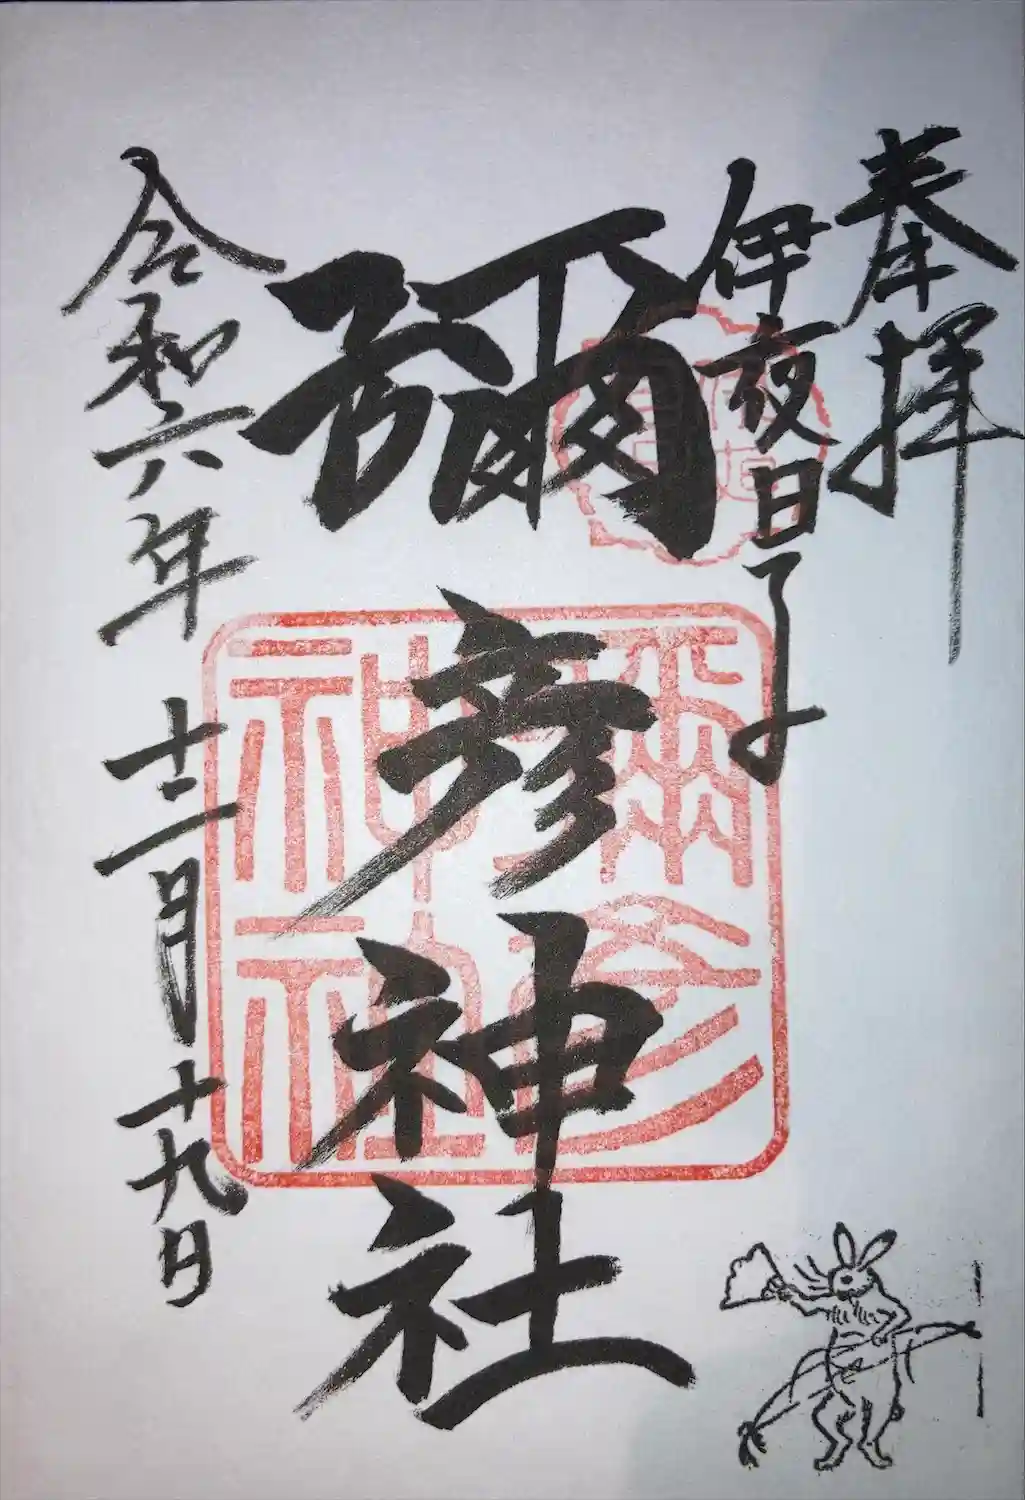 奉拝
伊夜日子
彌彦神社
令和六年十二月十九日
彌彦神社